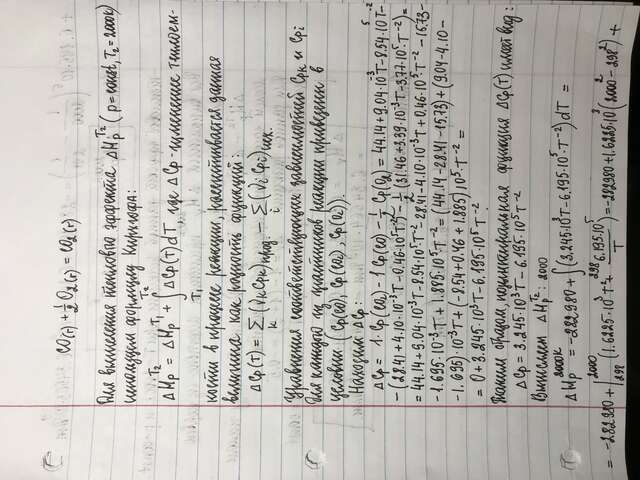 CO(г) + 1/2 O2(г) = CO2(г)
Для вычисления теплового эффекта ΔHp^T2 (p=const, T2=2000K)
используем формулу Кирхгофа:
ΔHp^T2 = ΔHp^T1 + ∫_T1^T2 ΔCp(T)dT, где ΔCp - изменение теплоем-
кости в процессе реакции, рассчитывается данная
величина как разность функций:
ΔCp(T) = Σ_k (νk Cpk)прод. - Σ_i (νi Cpi)исх.
Уравнения соответствующих зависимостей Cpk и Cpi
для каждого из участников реакции приведены в
условии (Cp(CO), Cp(CO2), Cp(O2)).
Находим ΔCp:
ΔCp = 1·Cp(CO2) - 1 Cp(CO) - 1/2 Cp(O2) = 44.14 + 9.04·10^-3 T - 8.54·10^5 T^-2 -
- (28.41 + 4.10·10^-3 T - 0.46·10^5 T^-2) - 1/2 (31.46 + 3.39·10^-3 T - 3.77·10^5 T^-2) =
= 44.14 + 9.04·10^-3 T - 8.54·10^5 T^-2 - 28.41 - 4.10·10^-3 T + 0.46·10^5 T^-2 - 15.73 -
- 1.695·10^-3 T + 1.885·10^5 T^-2 = (44.14 - 28.41 - 15.73) + (9.04 - 4.10 -
- 1.695)·10^-3 T + (-8.54 + 0.46 + 1.885) 10^5 T^-2 =
= 0 + 3.245·10^-3 T - 6.195·10^5 T^-2.
Таким образом, подинтегральная функция ΔCp(T) имеет вид:
ΔCp = 3.245·10^-3 T - 6.195·10^5 T^-2
Вычисляем ΔHp^T2:
ΔHp^2000K = -282980 + ∫_298^2000 (3.245·10^-3 T - 6.195·10^5·T^-2) dT =
= -282980 + |_298^2000 (1.6225·10^-3 T^2 + 6.195·10^5/T) = -282980 + 1.6225·10^-3 (2000^2 - 298^2) +